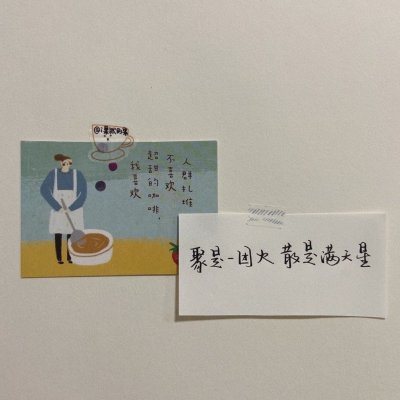 人群扎堆
不喜欢
超甜的咖啡，
我喜欢
聚是一团火 散是满天星